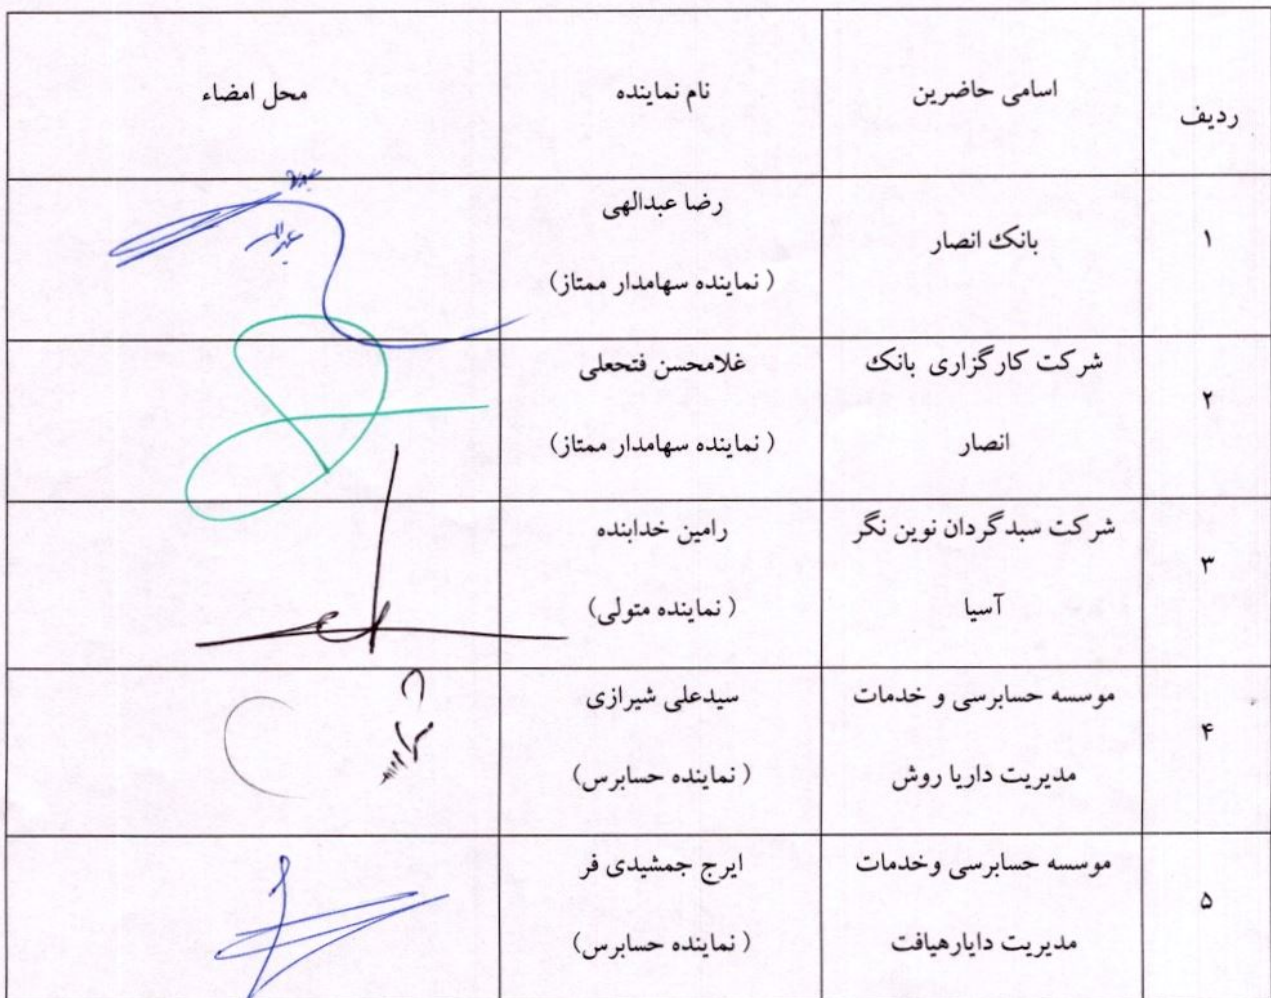 ردیف
اسامی حاضرین
نام نماینده
محل امضاء
۱
بانک انصار
رضا عبدالهی
( نماینده سهامدار ممتاز)
۲
شرکت کارگزاری بانک
انصار
غلامحسن فتحعلی
( نماینده سهامدار ممتاز)
۳
شرکت سبدگردان نوین نگر
آسیا
رامین خدابنده
( نماینده متولی)
۴
موسسه حسابرسی و خدمات
مدیریت داریا روش
سیدعلی شیرازی
( نماینده حسابرس)
۵
موسسه حسابرسی وخدمات
مدیریت دایارهیافت
ایرج جمشیدی فر
( نماینده حسابرس)